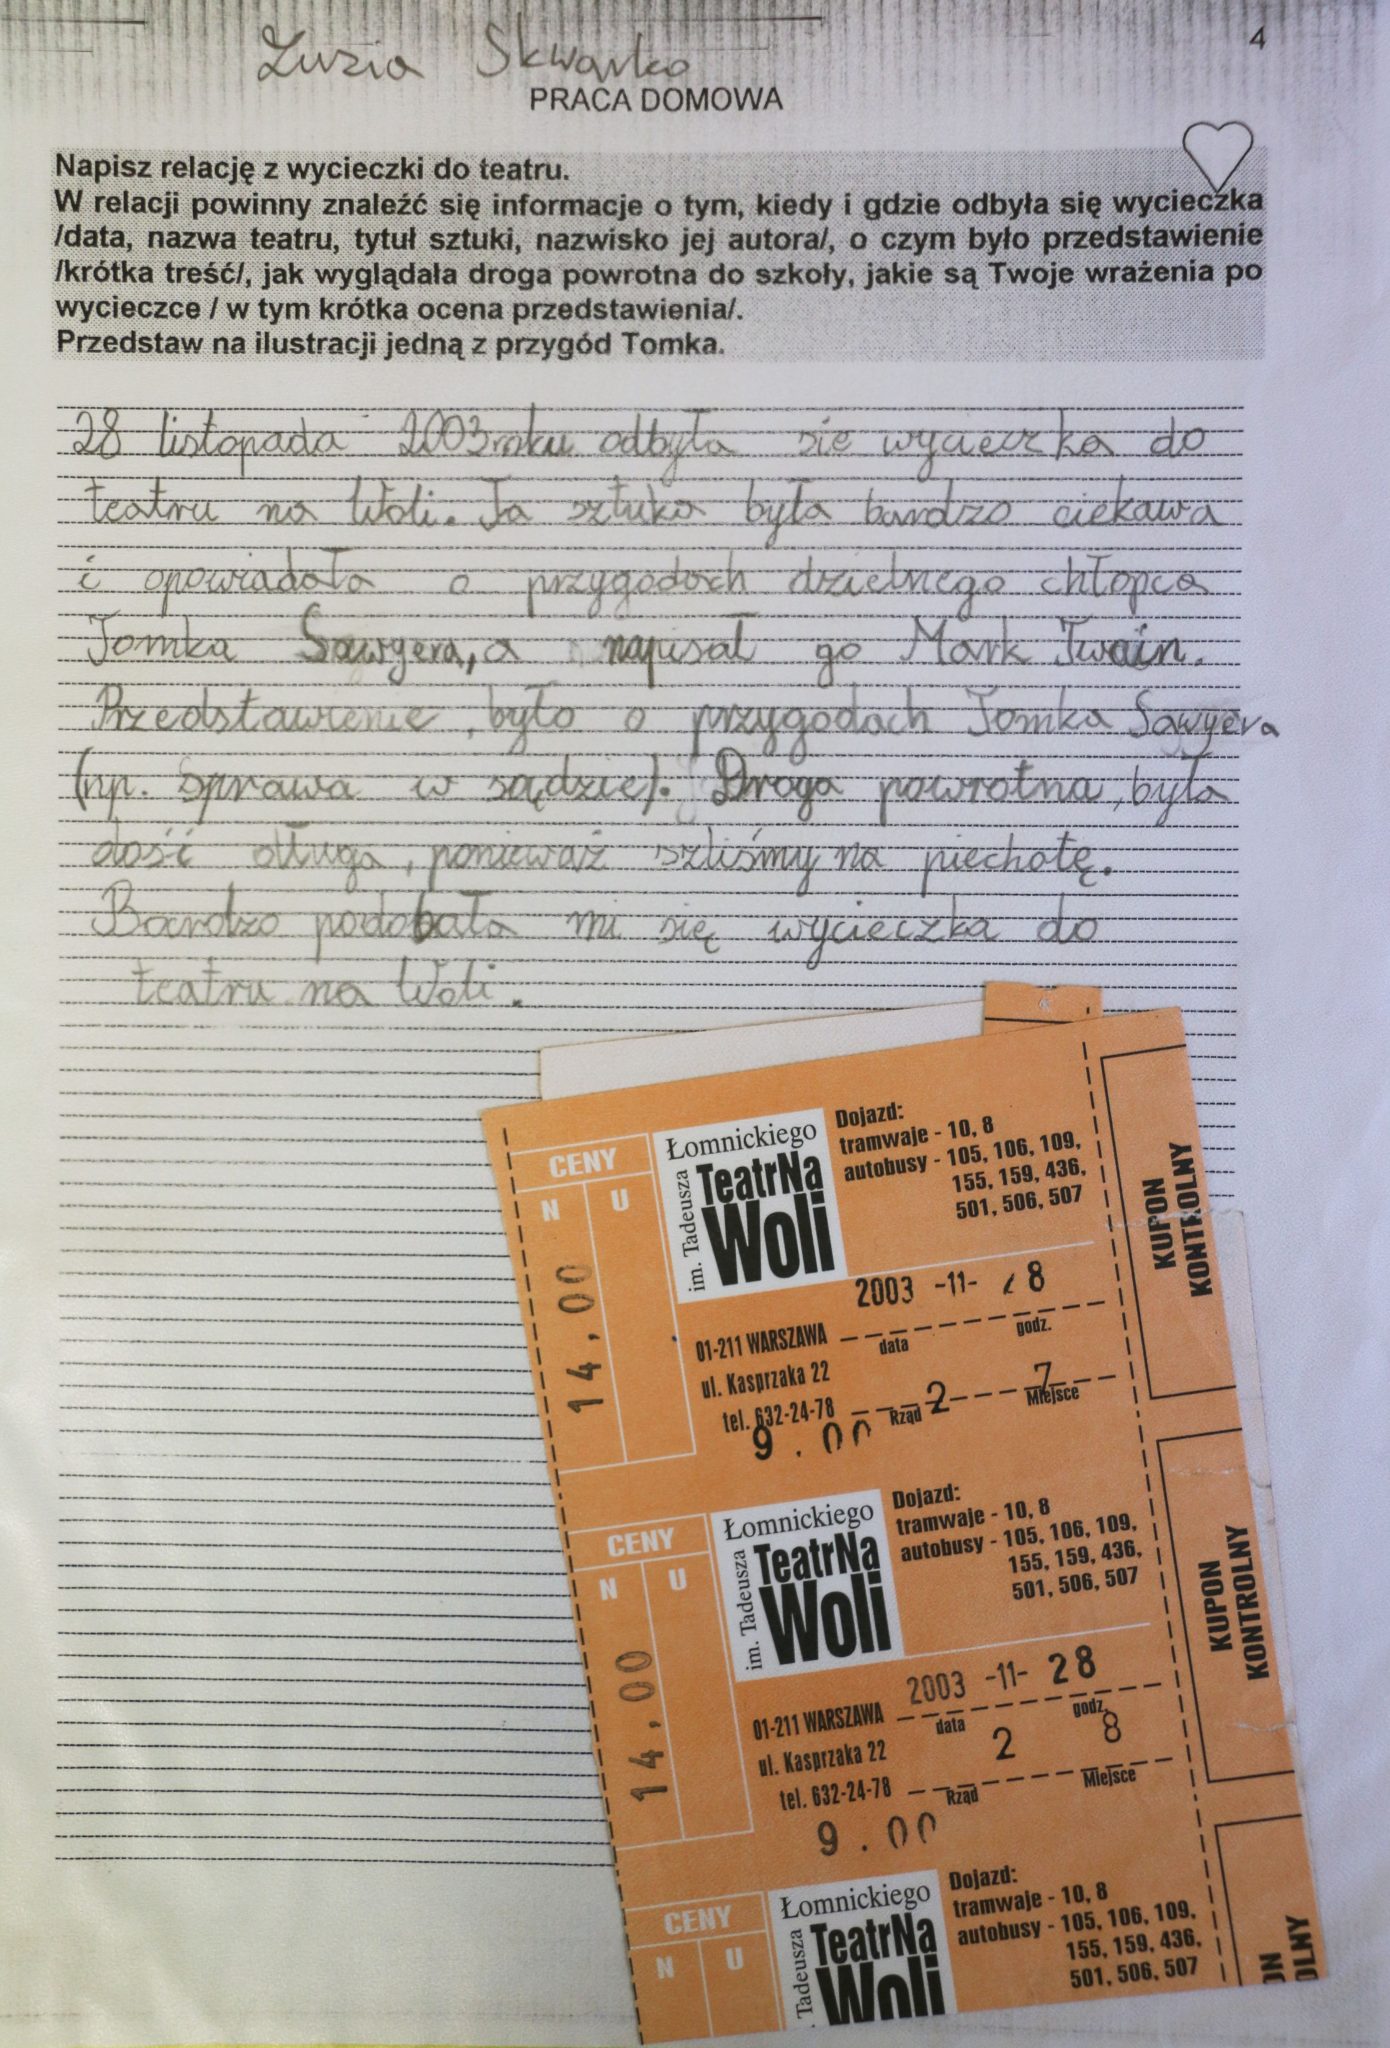 Zuzia Skwarko
4
PRACA DOMOWA
Napisz relację z wycieczki do teatru.
W relacji powinny znaleźć się informacje o tym, kiedy i gdzie odbyła się wycieczka
/data, nazwa teatru, tytuł sztuki, nazwisko jej autora/, o czym było przedstawienie
/krótka treść/, jak wyglądała droga powrotna do szkoły, jakie są Twoje wrażenia po
wycieczce / w tym krótka ocena przedstawienia/.
Przedstaw na ilustracji jedną z przygód Tomka.
28 listopada 2003 roku odbyła sie wycieczka do
teatru na Woli. Ta sztuka była bardzo ciekawa
i opowiadała o przygodach dzielnego chłopca
Tomka Sawyera, a napisał go Mark Twain.
Przedstawienie, było o przygodach Tomka Sawyera
(np. Sprawa w sądzie). Droga powrotna, była
dość długa, ponieważ szliśmy na piechotę.
Bardzo podobała mi się wycieczka do
teatru na Woli.
CENY
N U
14,00
im. Tadeusza
Łomnickiego
TeatrNa
Woli
Dojazd:
tramwaje - 10, 8
autobusy - 105, 106, 109,
155, 159, 436,
501, 506, 507
2003 -11- 28
01-211 WARSZAWA
data godz.
ul. Kasprzaka 22
2 7
tel. 632-24-78
Rząd Miejsce
9.00
KUPON
KONTROLNY
CENY
N U
14,00
im. Tadeusza
Łomnickiego
TeatrNa
Woli
Dojazd:
tramwaje - 10, 8
autobusy - 105, 106, 109,
155, 159, 436,
501, 506, 507
2003 -11- 28
01-211 WARSZAWA
data godz.
ul. Kasprzaka 22
2 8
tel. 632-24-78
Rząd Miejsce
9.00
KUPON
KONTROLNY
CENY
N U
Tadeusza
Łomnickiego
TeatrNa
Woli
Dojazd:
tramwaje - 10, 8
autobusy - 105, 106, 109,
155, 159, 436,
501, 506, 507
ON
OLNY